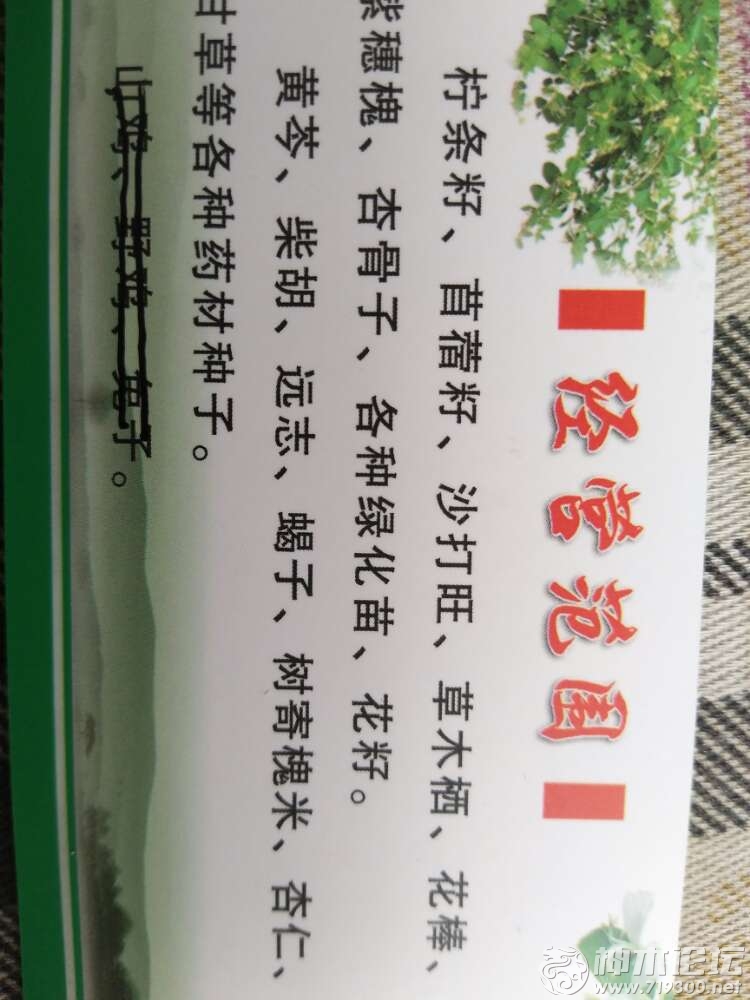 经营范围
柠条籽、苜蓿籽、沙打旺、草木栖、花棒、
紫穗槐、杏骨子、各种绿化苗、花籽。
黄芩、柴胡、远志、蝎子、树寄槐米、杏仁、
甘草等各种药材种子。
山鸡、野鸡、兔子。
神木论坛
www.719300.net